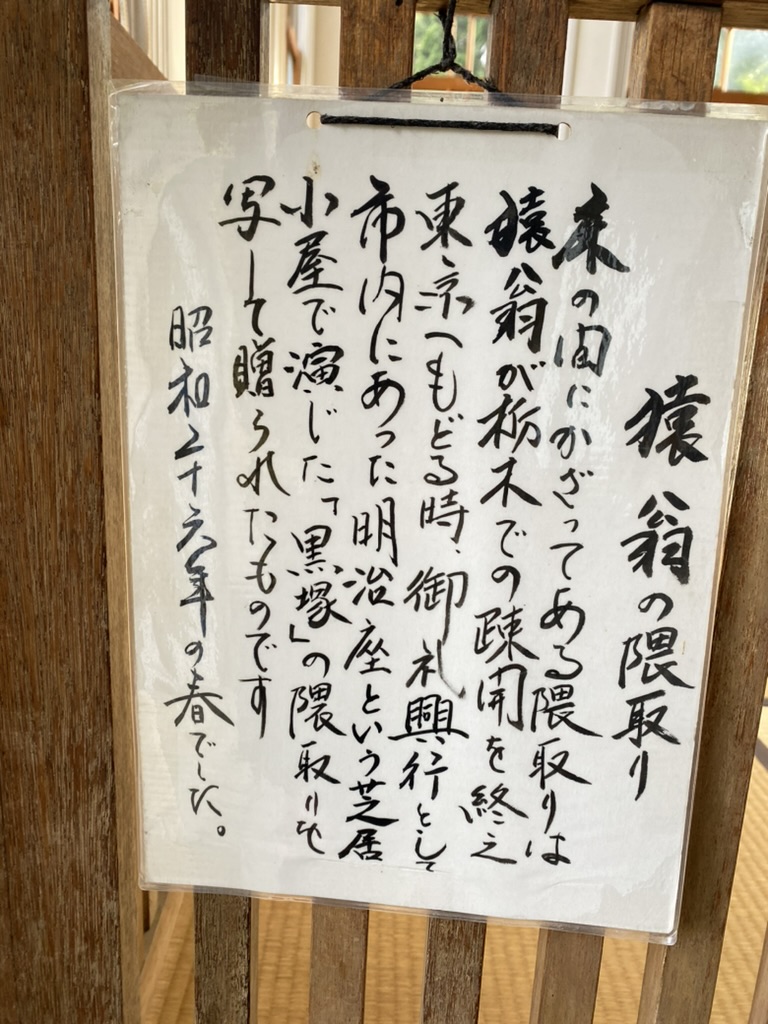 猿翁の隈取り
床の間にかざってある隈取りは
猿翁が栃木での疎開を終え
東京へもどる時、御礼興行として
市内にあった明治座という芝居
小屋で演じた「黒塚」の隈取りを
写して贈られたものです
昭和二十六年の春でした。